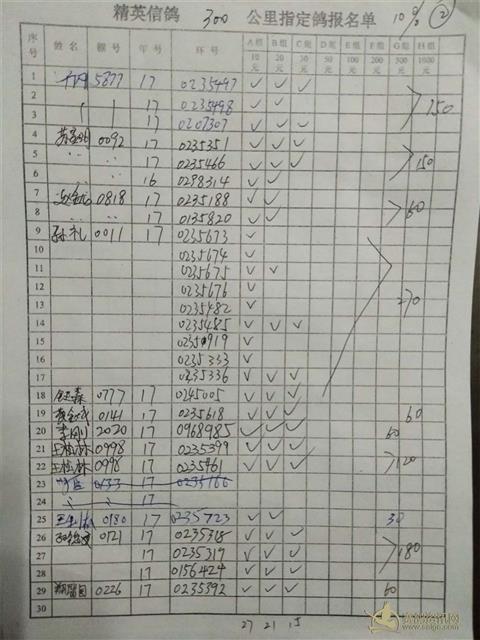 精英信鸽 300 公里指定鸽报名单 10% ②
序号 姓名 棚号 年号 环号 A组 B组 C组 D组 E组 F组 G组 H组
10元 20元 30元 50元 100元 200元 500元 1000元
1 5877 17 0235497 ✓ ✓ ✓
2 17 0235498 ✓ ✓
3 17 0207307 ✓ ✓ ✓ 150
4 0092 17 0235351 ✓ ✓ ✓
5 〃 〃 17 0235466 ✓ ✓ ✓ 150
6 〃 〃 16 0298314 ✓ ✓
7 0818 17 0235188 ✓ ✓
8 〃 〃 17 0135820 ✓ ✓ 60
9 孙礼 0011 17 0235673 ✓
10 0235674 ✓
11 0235675 ✓ ✓
12 0235676 ✓
13 0235482 ✓ 270
14 0235485 ✓ ✓ ✓
15 0235919 ✓
16 0235333 ✓
17 0235336 ✓ ✓ ✓
18 0777 17 0245005 ✓ ✓ ✓
19 0141 17 0235618 ✓ ✓ ✓ 60
20 李刚 2020 17 0968985 ✓ ✓ ✓ 60
21 王桂林 0998 17 0235399 ✓ ✓ ✓
22 王桂林 0998 17 0235461 ✓ ✓ ✓ 120
23 0133 17 0235166
24 17
25 0180 17 0235723 ✓ ✓ 30
26 0121 17 0235318 ✓ ✓ ✓
27 17 0235319 ✓ ✓ ✓ 180
28 17 0156424 ✓ ✓ ✓
29 0226 17 0235392 ✓ ✓ ✓ 60
30
27 21 15